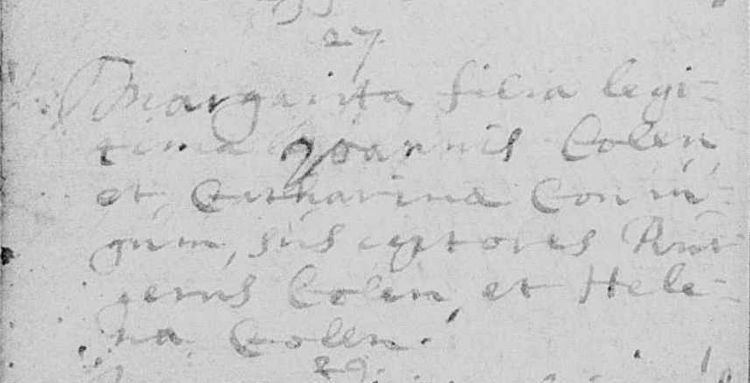 27.
Margarita filia legi-
tima Joannis Colen
et Catharinæ Conin-
gum, susceptores Rut-
gerus Colen, et Hele-
na Colen.
29.